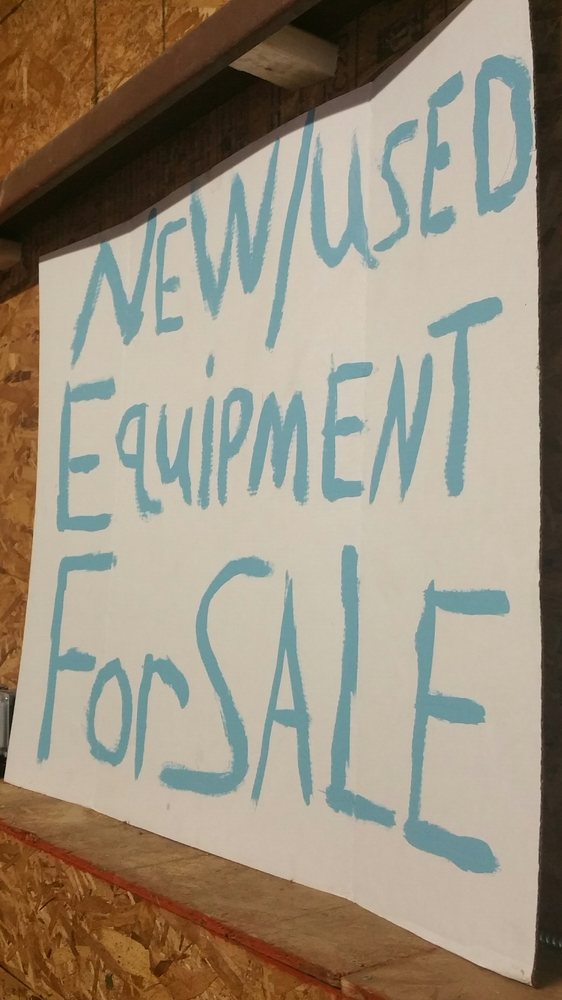 NEW/USED
EquipMENT
For SALE